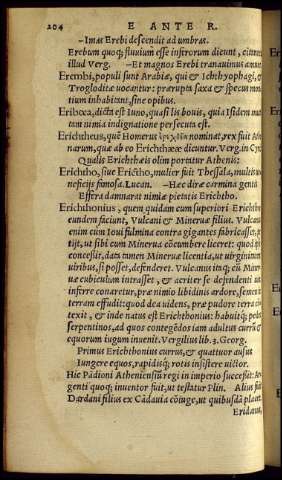 204 E ANTE R.
–Imas Erebi descendit ad umbras.
Erebum quoq; fluuium esse inferorum dicunt,
illud Verg. –Et magnos Erebi tranauimus amnes
Erembi, populi sunt Arabiæ, qui & Ichthyophagi, &
Trogloditæ uocantur: prærupta saxa & specus
tium inhabitant, sine opibus.
Eribœa, dicta est Iuno, quasi lis bouis, quia Isidem
tam nimia indignatione persecuta est.
Erichtheus, quē Homerus nominat, rex fuit
narum, quæ ab eo Erichtheææ dicuntur. Verg. in
Qualis Erichthæis olim portatur Athenis:
Erichtho, siue Erictho, mulier fuit Thessala,
neficijs famosa. Lucan. –Hæc diræ carmina gentis
Effera damnarat nimiæ pietatis Erichtho.
Erichthonius, quem quidam cum superiori
eundem faciunt, Vulcani & Mineruæ filius.
enim cum Ioui fulmina contra gigantes fabricasset,
tijt, ut sibi cum Minerua cōcumbere liceret: quod
concessit, data tamen Mineruæ licentia, ut uirginitatem
uiribus, si posset, defenderet. Vulcanus itaq; cū
uæ cubiculum intrasset, & acriter se defendenti
inferre conaretur, præ nimio libidinis ardore,
terram effudit: quod dea uidens, præ pudore terra
texit, & inde natus est Erichthonius: habuitq;
serpentinos, ad quos contegēdos iam adultus currū &
equorum iugum inuenit. Vergilius lib. 3. Georg.
Primus Erichthonius currus, & quattuor ausus
Iungere equos, rapidisq; rotis insistere uictor.
Hic Pādioni Atheniensiū regi in imperio successit:
genti quoq; inuentor fuit, ut testatur Plin. Alius
Dardani filius ex Cādauia cōiuge, ut quibusdā placet
Eridanus,